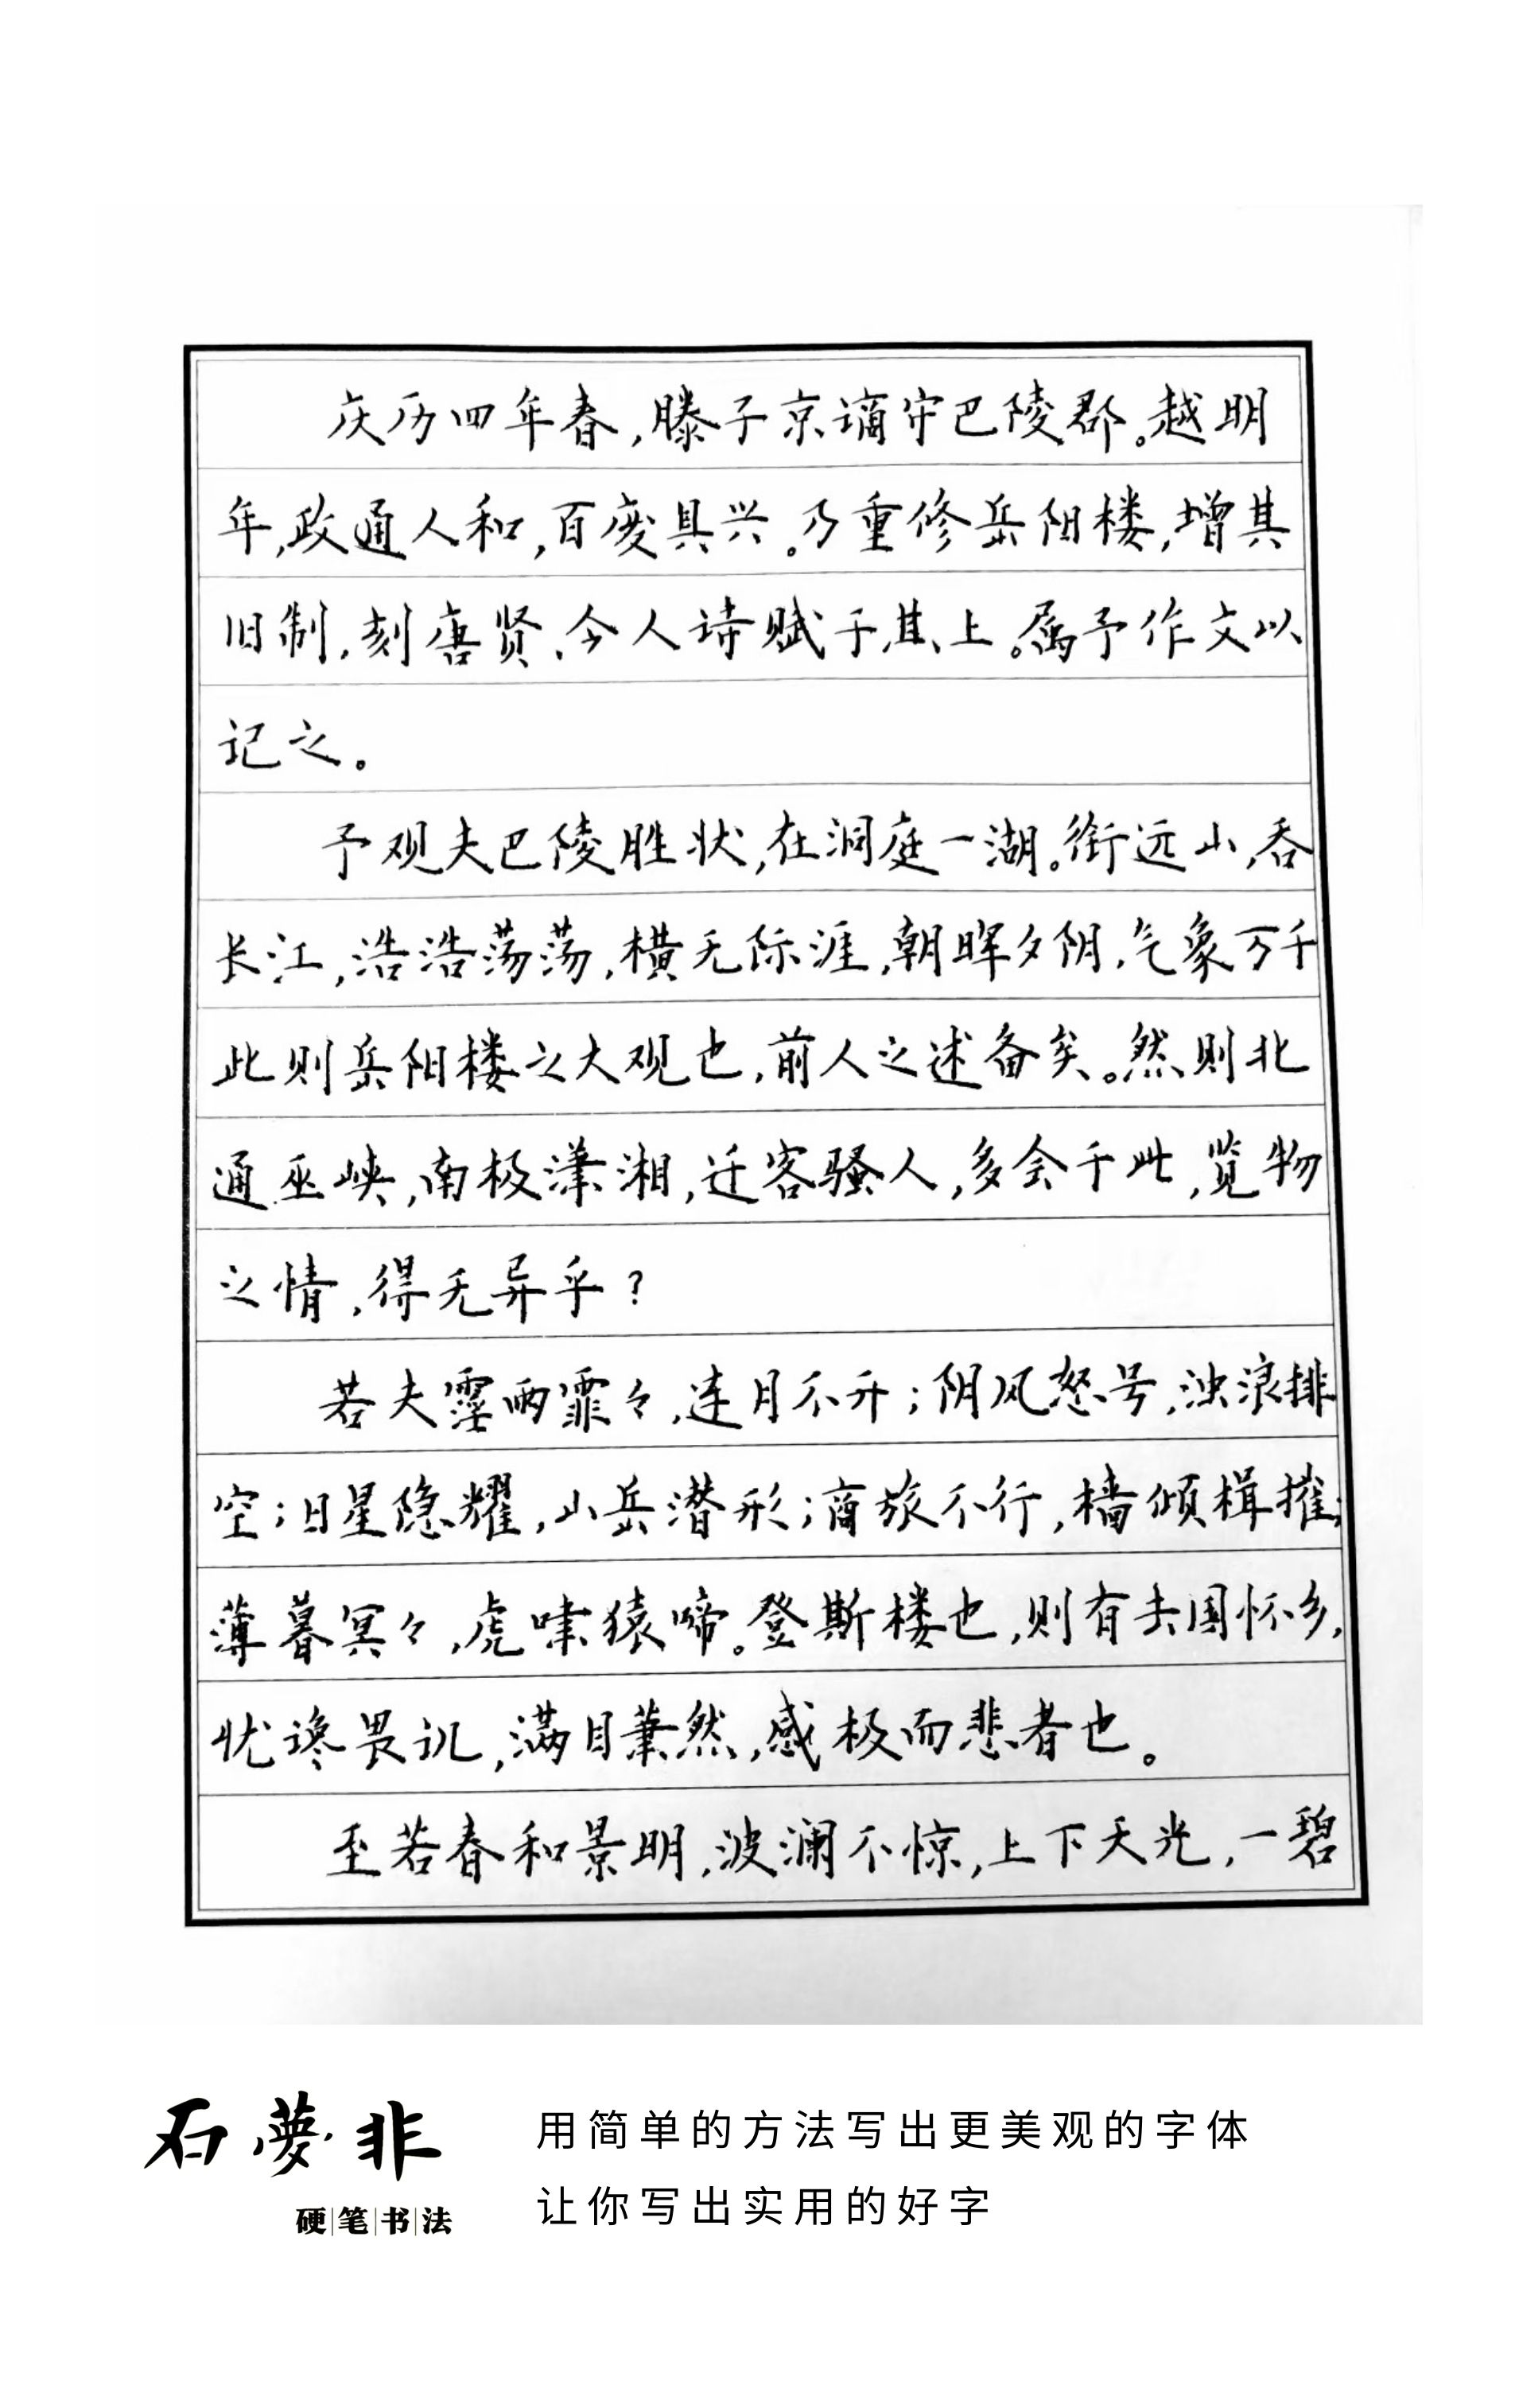 庆历四年春,滕子京谪守巴陵郡。越明
年,政通人和,百废具兴。乃重修岳阳楼,增其
旧制,刻唐贤、今人诗赋于其上。属予作文以
记之。
予观夫巴陵胜状,在洞庭一湖。衔远山,吞
长江,浩浩荡荡,横无际涯,朝晖夕阴,气象万千
此则岳阳楼之大观也,前人之述备矣。然则北
通巫峡,南极潇湘,迁客骚人,多会于此,览物
之情,得无异乎?
若夫霪雨霏々,连月不开;阴风怒号,浊浪排
空;日星隐耀,山岳潜形;商旅不行,樯倾楫摧;
薄暮冥々,虎啸猿啼。登斯楼也,则有去国怀乡,
忧谗畏讥,满目萧然,感极而悲者也。
至若春和景明,波澜不惊,上下天光,一碧
石夢非
硬|笔|书|法
用简单的方法写出更美观的字体
让你写出实用的好字